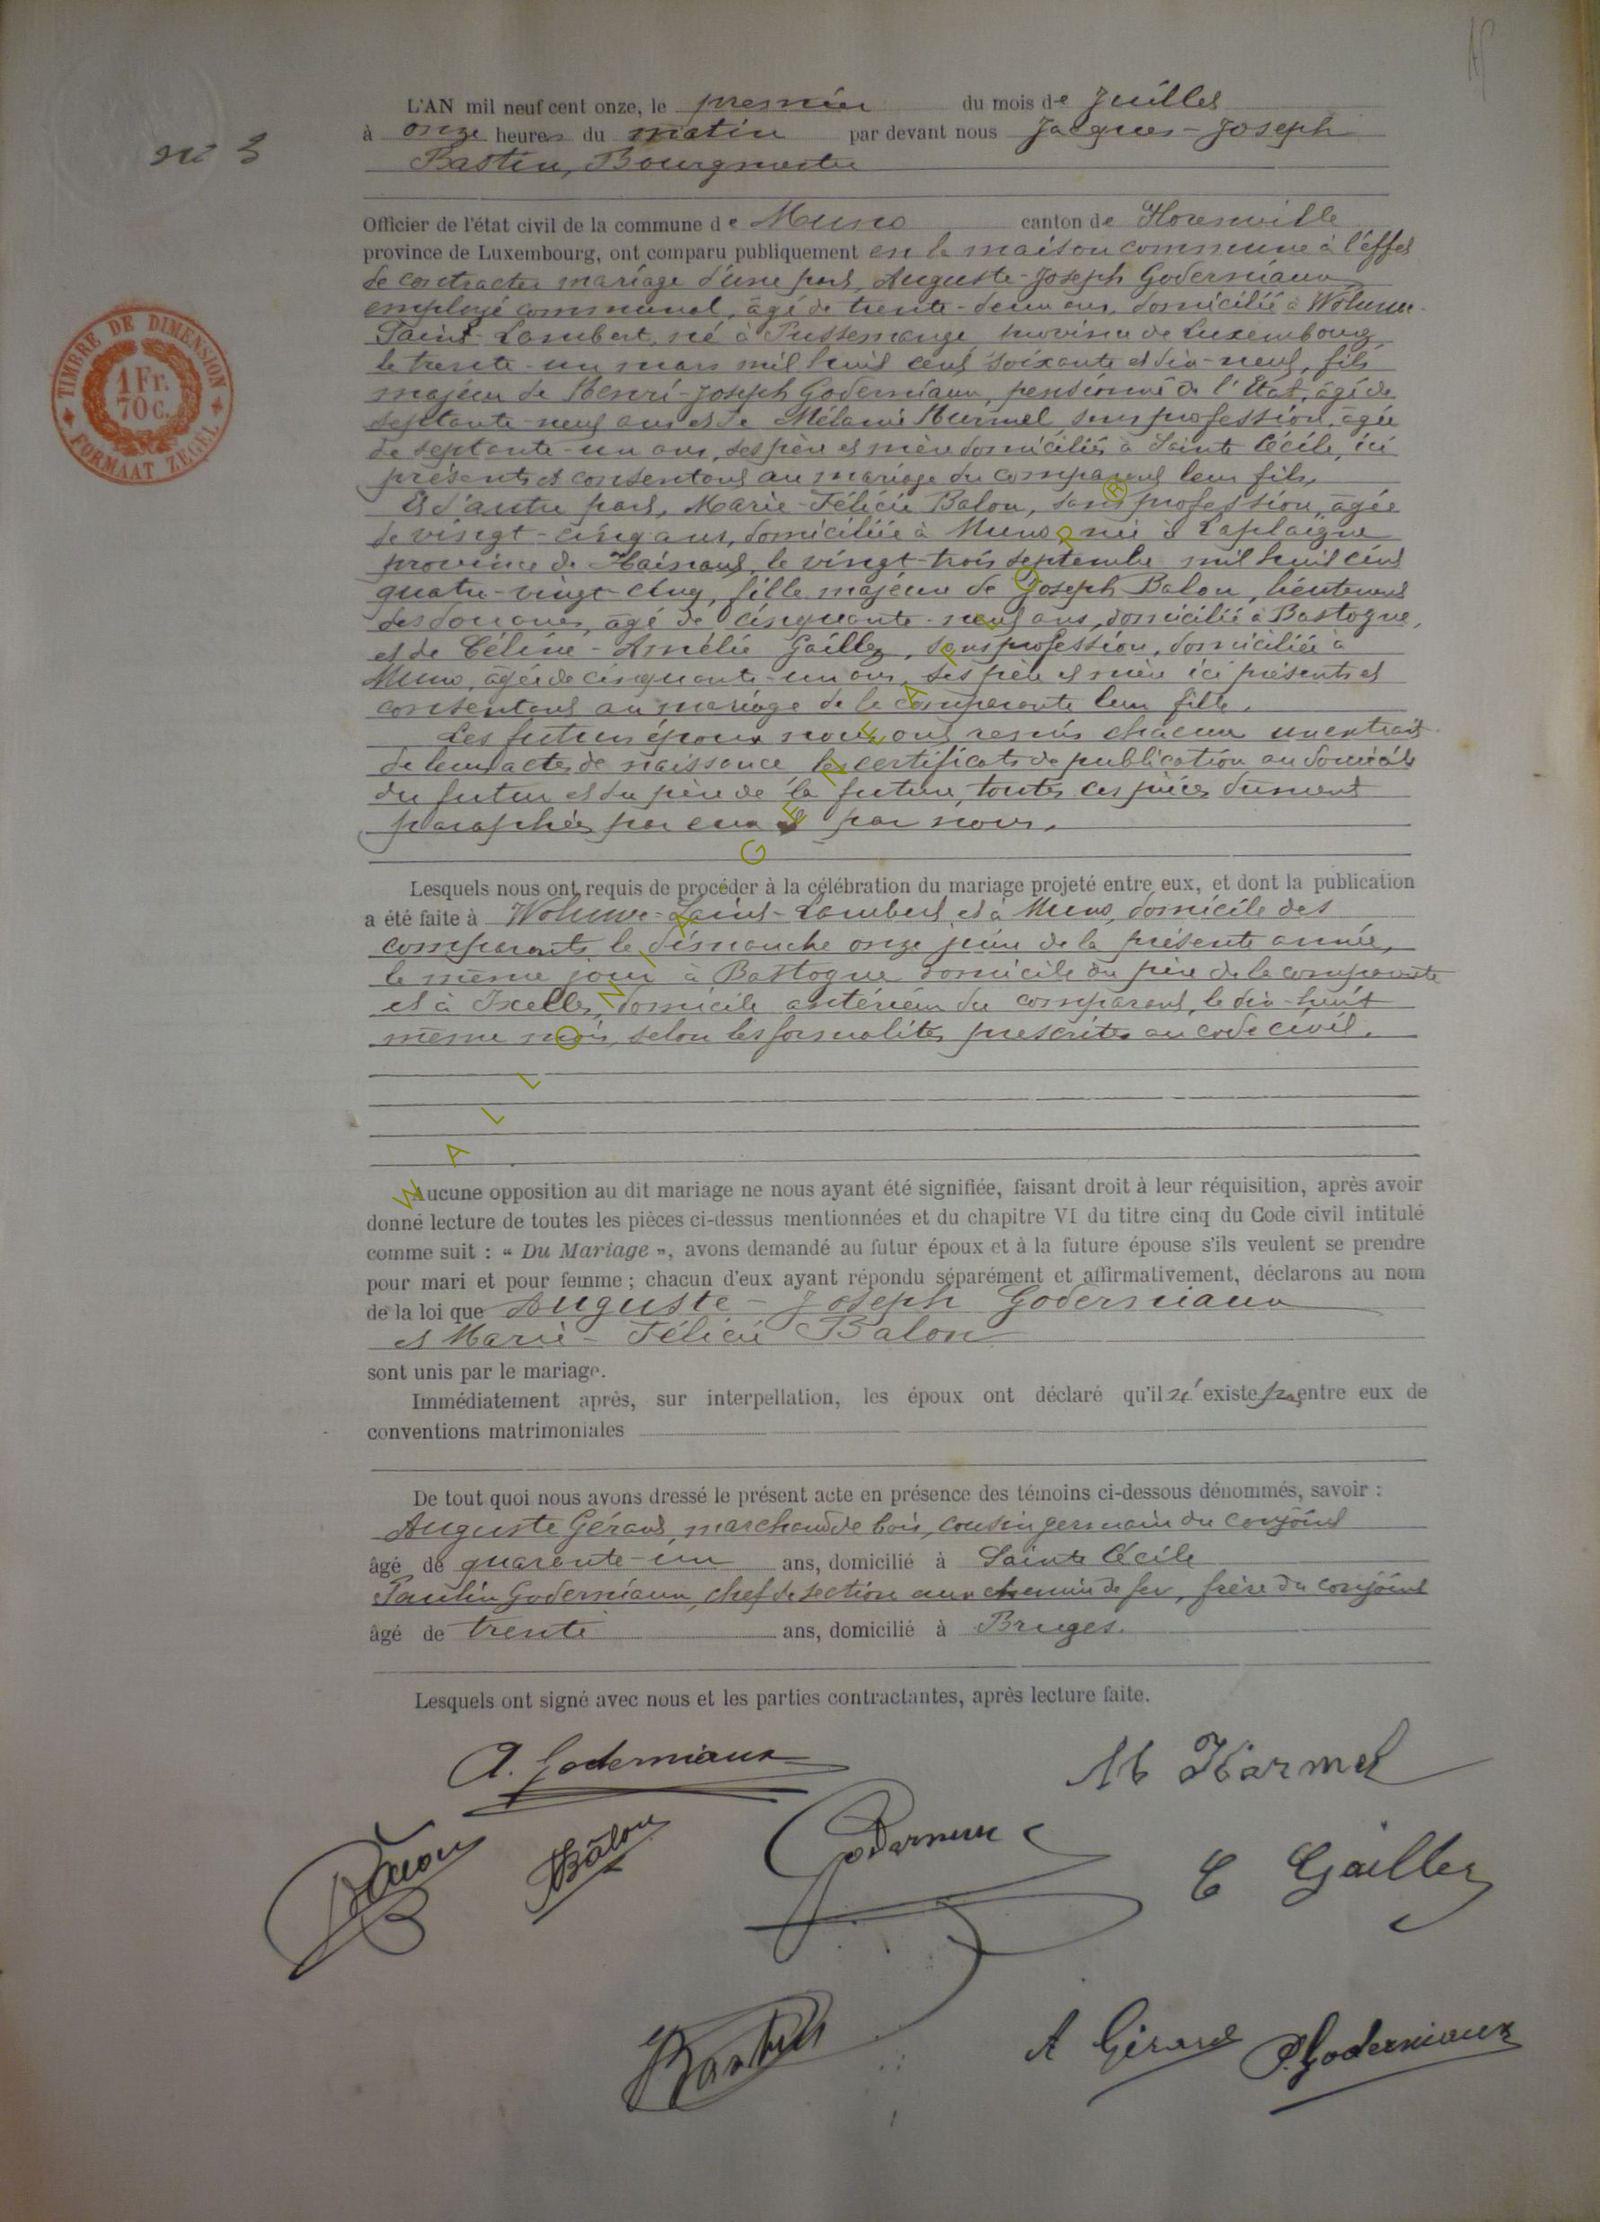 L'AN mil neuf cent onze, le premier du mois de Juillet
à onze heures du matin par devant nous Jacques-Joseph
n° 3
Bastin, Bourgmestre
Officier de l'état civil de la commune de Muno canton de Florenville
province de Luxembourg, ont comparu publiquement en la maison commune à l'effet
de contracter mariage d'une part, Auguste-Joseph Goderniaux
employé communal, âgé de trente-deux ans, domicilié à Woluwe-
Saint-Lambert, né à Pussemange, province de Luxembourg,
le trente-un mars mil huit cent soixante et dix-neuf, fils
majeur de Henri-Joseph Goderniaux, pensionné de l'Etat, âgé de
septante-neuf ans et de Mélanie Hurmel, sans profession, âgée
de septante-un ans, ses père et mère domiciliés à Sainte Cécile, ici
présents et consentant au mariage du comparant leur fils,
Et d'autre part, Marie-Félicie Balon, sans profession, âgée
de vingt-cinq ans, domiciliée à Muno, née à Laplaigne
province de Hainaut, le vingt-trois septembre mil huit cent
quatre-vingt-cinq, fille majeure de Joseph Balon, lieutenant
des douanes, âgé de cinquante-neuf ans, domicilié à Bastogne,
et de Céline-Amélie Gaillez, sans profession, domiciliée à
Muno, âgée de cinquante-un ans, ses père et mère ici présents et
consentant au mariage de la comparante leur fille.
Les futurs époux nous ont remis chacun un extrait
de leurs actes de naissance les certificats de publication au domicile
du futur et du père de la future, toutes ces pièces dûment
paraphées par eux et par nous.
Lesquels nous ont requis de procéder à la célébration du mariage projeté entre eux, et dont la publication
a été faite à Woluwe-Saint-Lambert et à Muno, domicile des
comparants le dimanche onze juin de la présente année,
le même jour à Bastogne domicile du père de la comparante
et à Ixelles, domicile antérieur du comparant, le dix-huit
même mois, selon les formalités prescrites au code civil.
Aucune opposition au dit mariage ne nous ayant été signifiée, faisant droit à leur réquisition, après avoir
donné lecture de toutes les pièces ci-dessus mentionnées et du chapitre VI du titre cinq du Code civil intitulé
comme suit : « Du Mariage », avons demandé au futur époux et à la future épouse s'ils veulent se prendre
pour mari et pour femme ; chacun d'eux ayant répondu séparément et affirmativement, déclarons au nom
de la loi que Auguste-Joseph Goderniaux
et Marie-Félicie Balon
sont unis par le mariage.
Immédiatement après, sur interpellation, les époux ont déclaré qu'il n'existe pas entre eux de
conventions matrimoniales
De tout quoi nous avons dressé le présent acte en présence des témoins ci-dessous dénommés, savoir :
Auguste Gérard, marchand de bois, cousin germain du conjoint
âgé de quarante-un ans, domicilié à Sainte Cécile
Paulin Goderniaux, chef de section aux chemin de fer, frère du conjoint
âgé de trente ans, domicilié à Bruges.
Lesquels ont signé avec nous et les parties contractantes, après lecture faite.
A. Goderniaux
M Harmel
Balon
Balon
Goderniaux
C Gaillez
Bastin
A Gérard
P. Goderniaux
TIMBRE DE DIMENSION
1 Fr.
70 c.
FORMAAT ZEGEL
WALLONIA GENEA PICOP ®